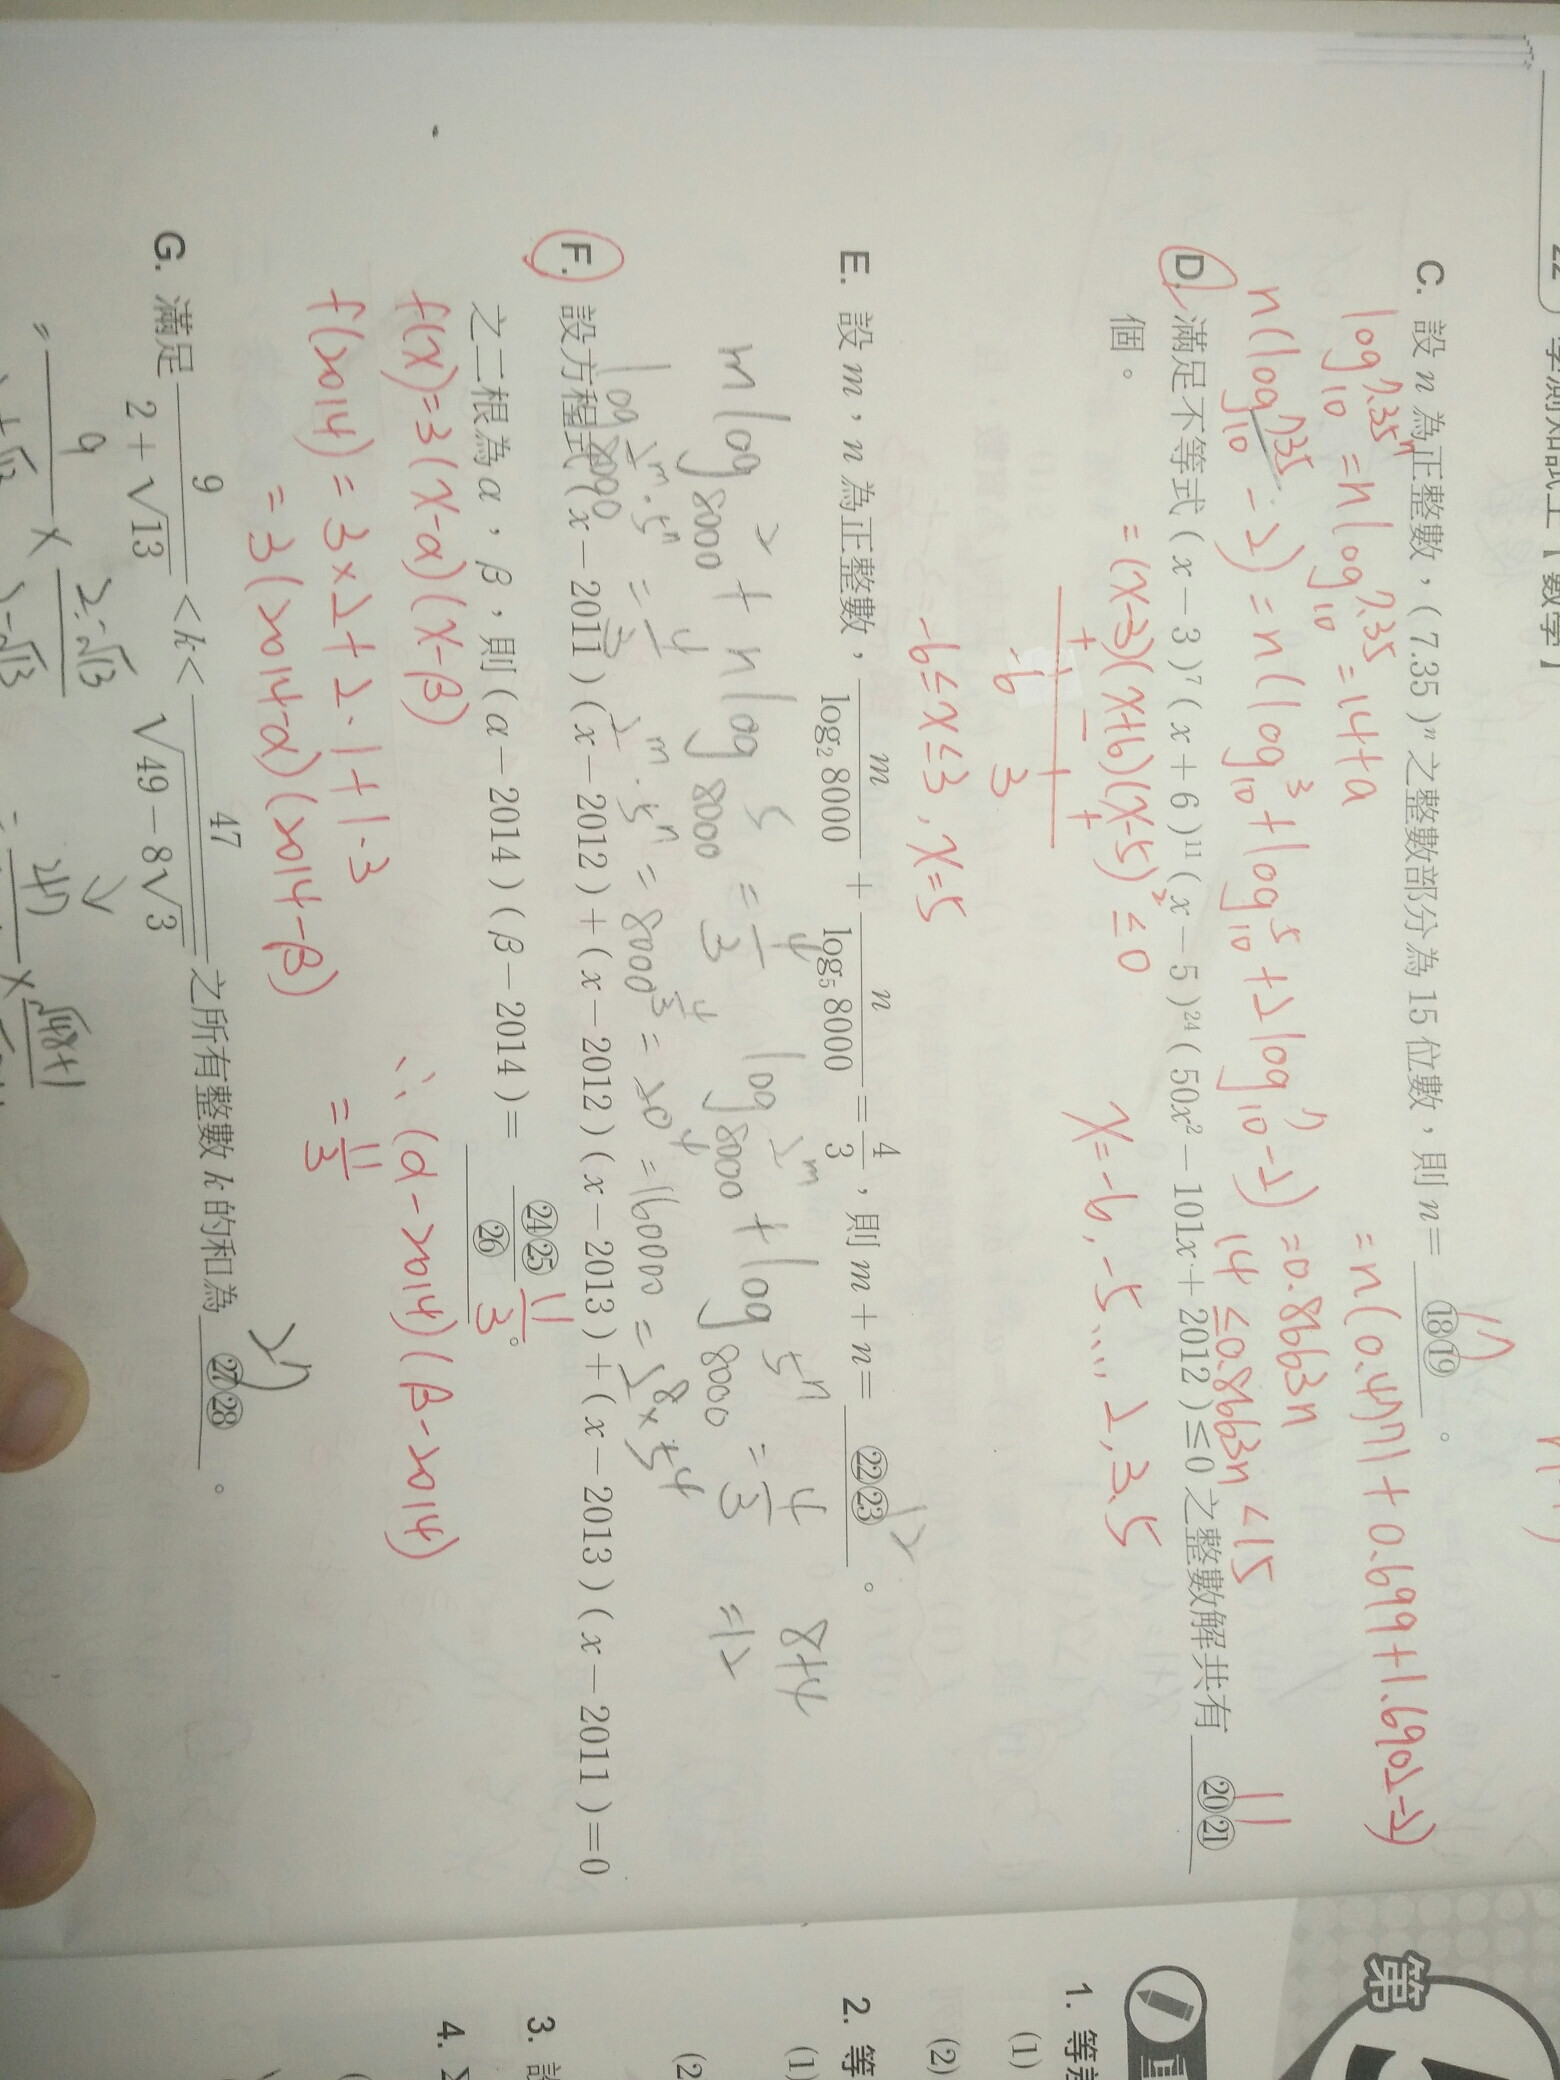 學測知試王【數學】
C. 設 n 為正整數，( 7.35 )ⁿ 之整數部分為 15 位數，則 n = ⑱⑲ 。
17
log₁₀7.35ⁿ = n log₁₀7.35 = 14+a
= n(0.4771+0.699+1.6902-2)
n(log₁₀7.35 - 2) = n(log₁₀3 + log₁₀5 + 2log₁₀7 - 2) = 0.8663n
14 ≤ 0.8663n < 15
D. 滿足不等式 ( x − 3 )⁷( x + 6 )¹¹( x − 5 )²⁴( 50x² − 101x + 2012 ) ≤ 0 之整數解共有 ⑳㉑
11
個。
= (x-3)(x+6)(x-5)² ≤ 0
x = -6, -5 .... 2, 3, 5
+ - +
-6 3
-6 ≤ x ≤ 3, x = 5
E. 設 m，n 為正整數，m/log₂8000 + n/log₅8000 = 4/3，則 m + n = ㉒㉓ 。
12
m log₈₀₀₀2 + n log₈₀₀₀5 = 4/3
log₈₀₀₀2ᵐ + log₈₀₀₀5ⁿ = 4/3
8+4
=12
log₈₀₀₀2ᵐ·5ⁿ = 4/3
2ᵐ·5ⁿ = 8000^(4/3) = 20⁴ = 160000 = 2⁸×5⁴
F. 設方程式 ( x − 2011 )( x − 2012 ) + ( x − 2012 )( x − 2013 ) + ( x − 2013 )( x − 2011 ) = 0
之二根為 α，β，則 ( α − 2014 )( β − 2014 ) = ㉔㉕/㉖ 。
11/3
f(x) = 3(x-α)(x-β)
f(2014) = 3×2+2·1+1·3
= 3(2014-α)(2014-β)
∴ (α-2014)(β-2014)
= 11/3
G. 滿足 9/(2 + √13) < k < 47/√(49 − 8√3) 之所有整數 k 的和為 ㉗㉘ 。
27
= 9
× 2-√13
47
√48+1
第
1. 等
(1)
(2)
2. 等
(1)
(2
3. 設
4. Σ